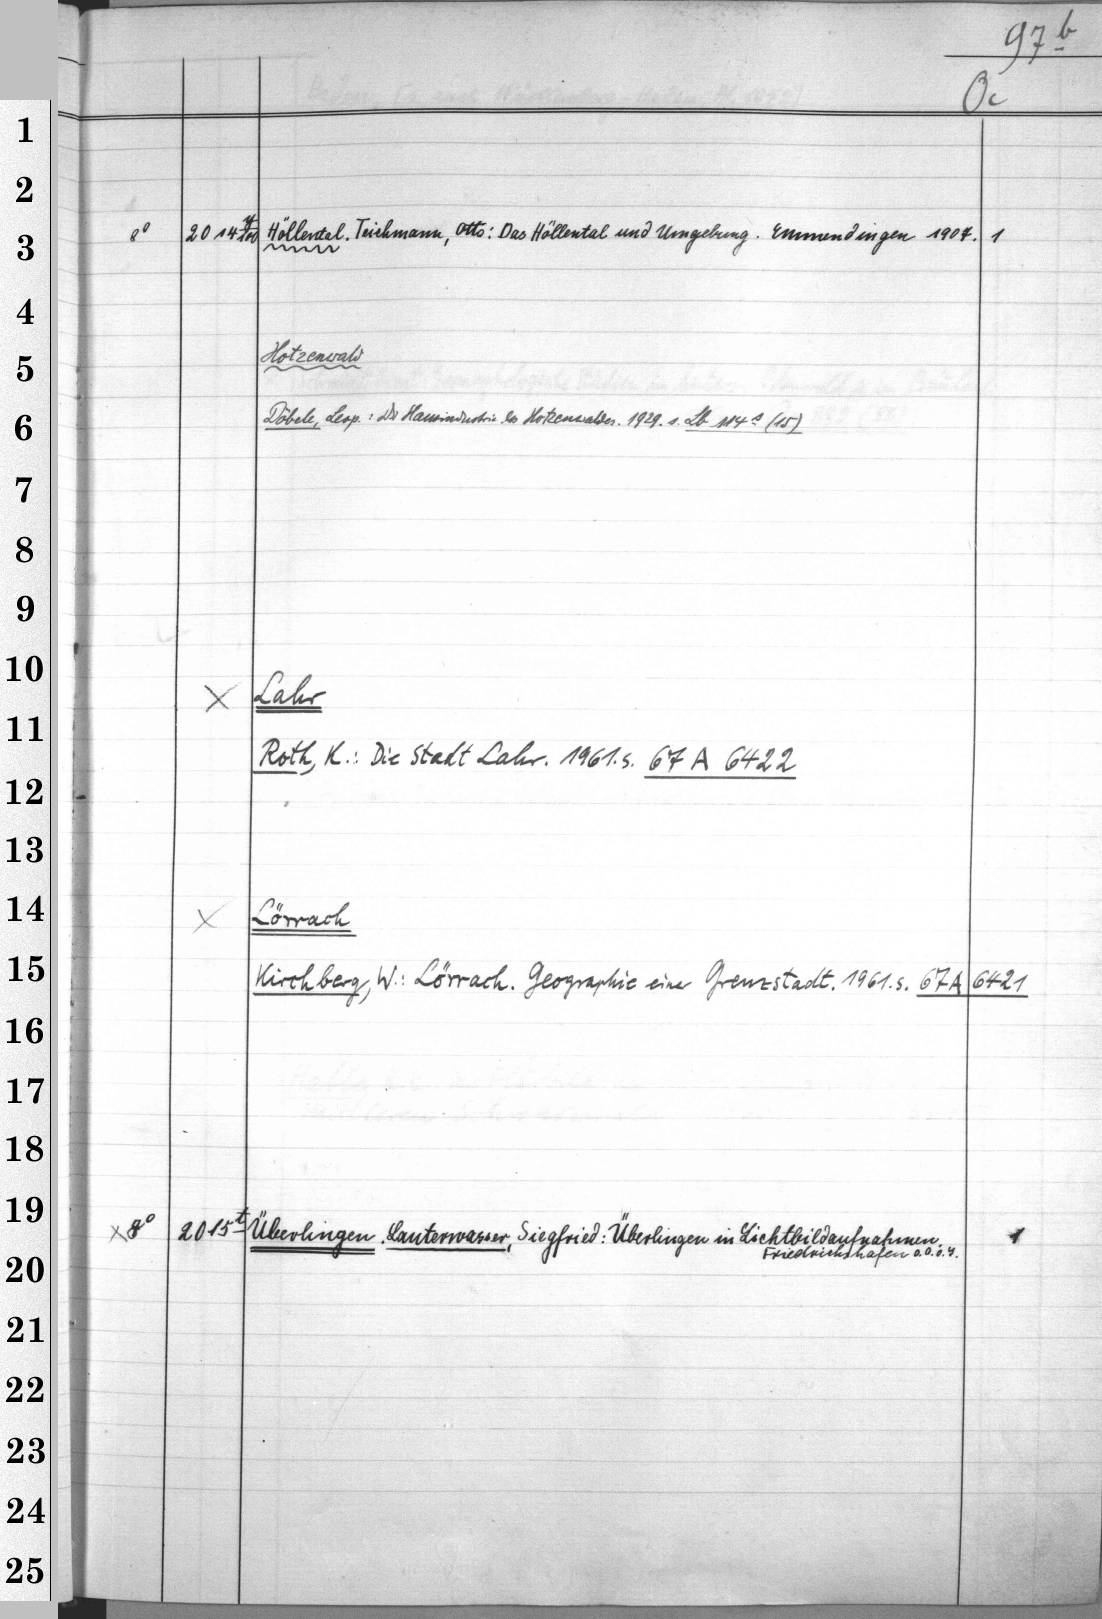 97 b
Oc
8° 2014 y/100 Höllental. Teichmann, Otto: Das Höllental und Umgebung. Emmendingen 1907. 1
Hotzenwald
Döbele, Leop.: Die Hausindustrie des Hotzenwaldes. 1929. s. Lb 114 s (15)
X Lahr
Roth, K.: Die Stadt Lahr. 1961. s. 67 A 6422
X Lörrach
Kirchberg, W.: Lörrach. Geographie einer Grenzstadt. 1961. s. 67A 6421
X 8° 2015 t Überlingen. Lauterwasser, Siegfried: Überlingen in Lichtbildaufnahmen. 1
Friedrichshafen o.O.o.J.
1
2
3
4
5
6
7
8
9
10
11
12
13
14
15
16
17
18
19
20
21
22
23
24
25